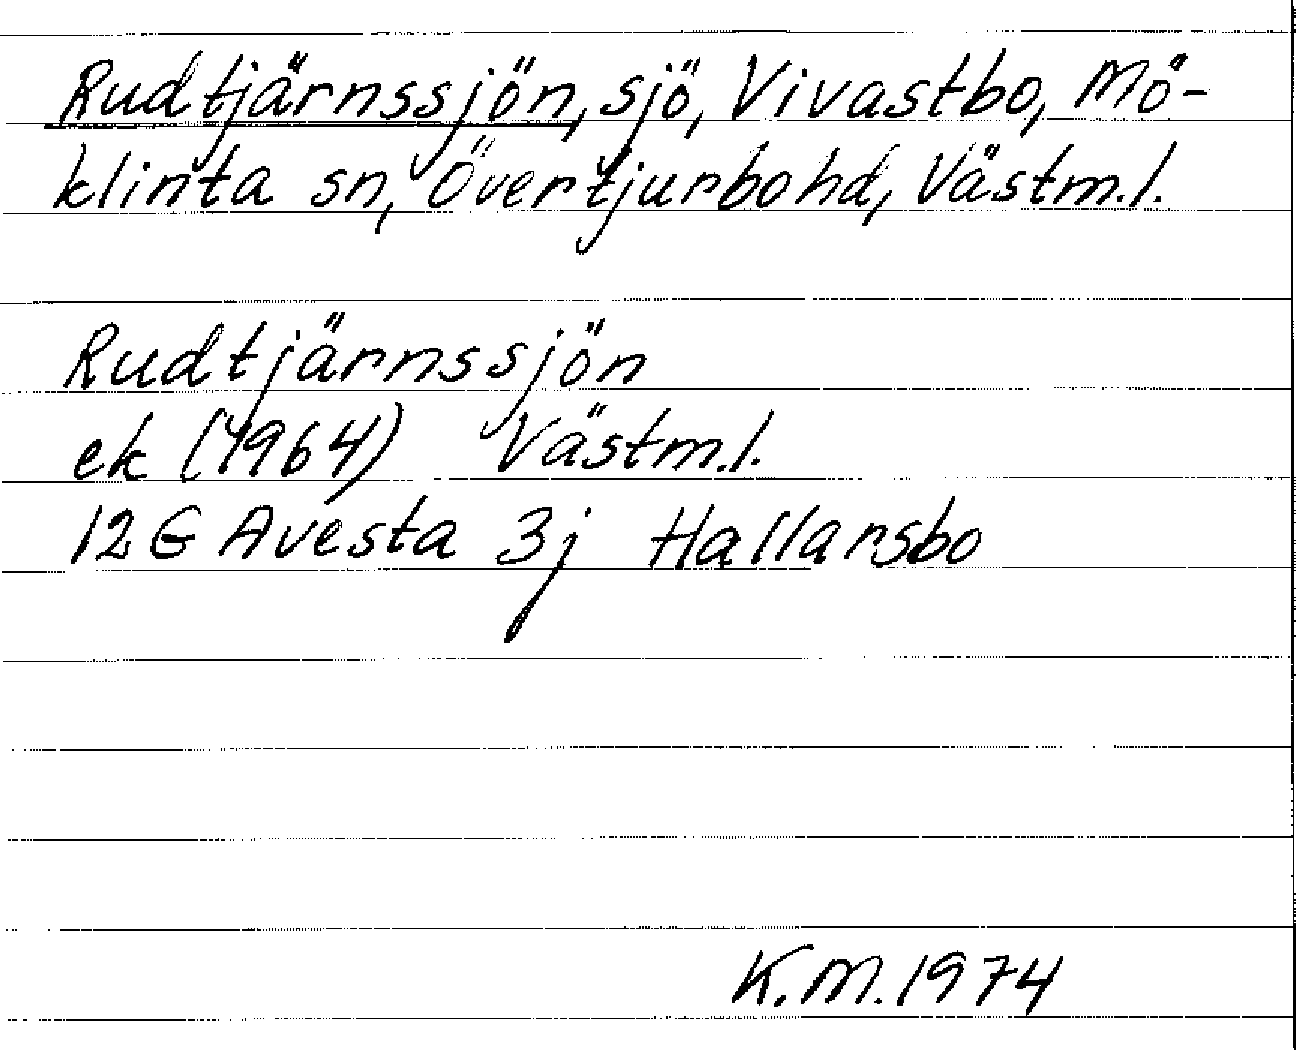 Rudtjärnssjön, sjö, Vivastbo, Mö-
klinta sn, Övertjurbo hd, Västm.l.
Rudtjärnssjön
ek (1964) Västm.l.
12G Avesta 3j Hallarsbo
K.M. 1974